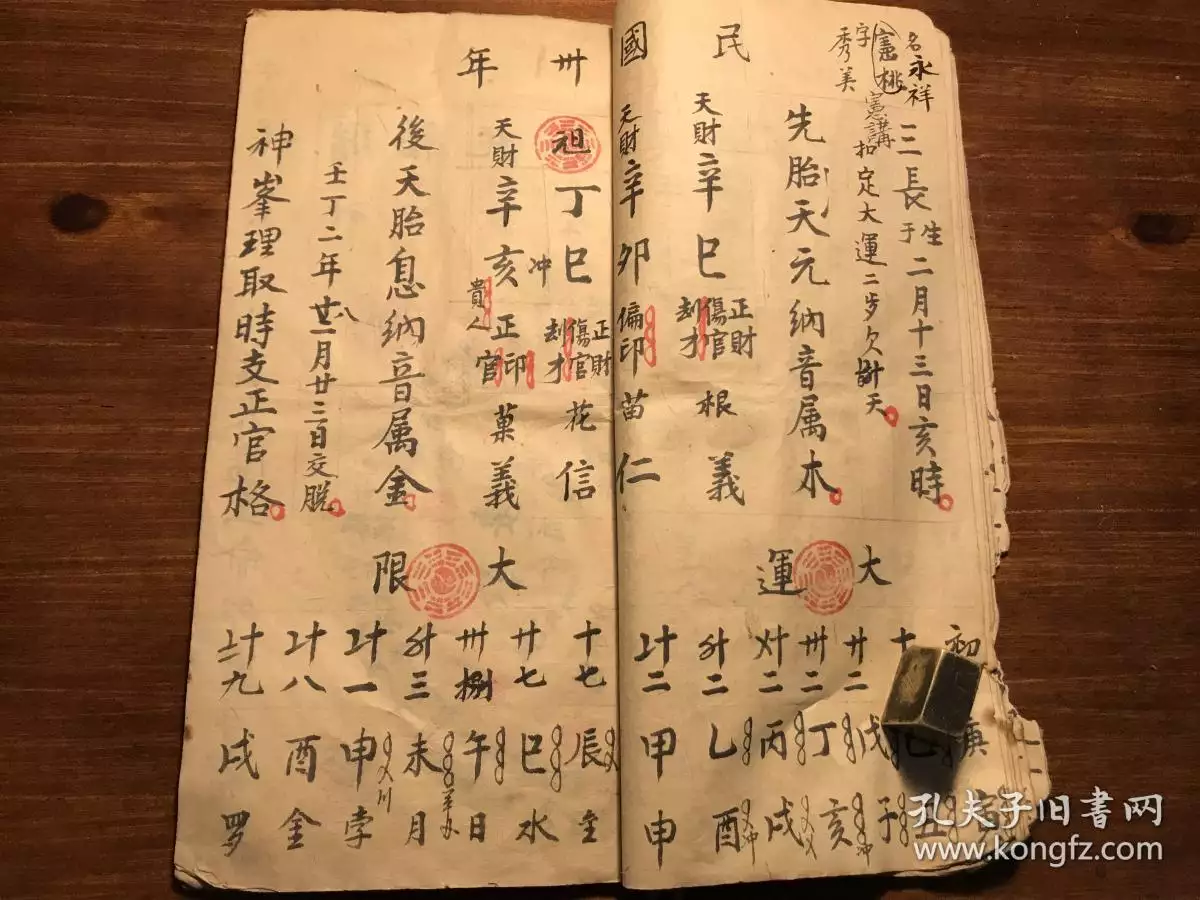 名永祥
憲桃
字秀美
憲講
三長生于二月十三日亥時
扣定大運二步欠卦天
先胎天元納音属木
民國卅年
天財辛巳
正財
傷官
刦才
根義
天財辛卯
偏印
苗仁
祖丁巳
冲
正財
傷官
刦才
花信
天財辛亥
貴人
正印
正官
菓義
後天胎息納音属金
壬丁二年
月廿三日交脱
神峯理取時支正官格
大運
初
庚
十
廿二
戊子
卅二
丁亥
〤十二
丙戌
〥十二
乙酉
〦十二
甲申
大限
十七
辰
廿七
巳水
卅捌
午日
〥十三
未月
〦十一
申孛
〦十八
酉金
〧十九
戌罗
孔夫子旧书网
www.kongfz.com